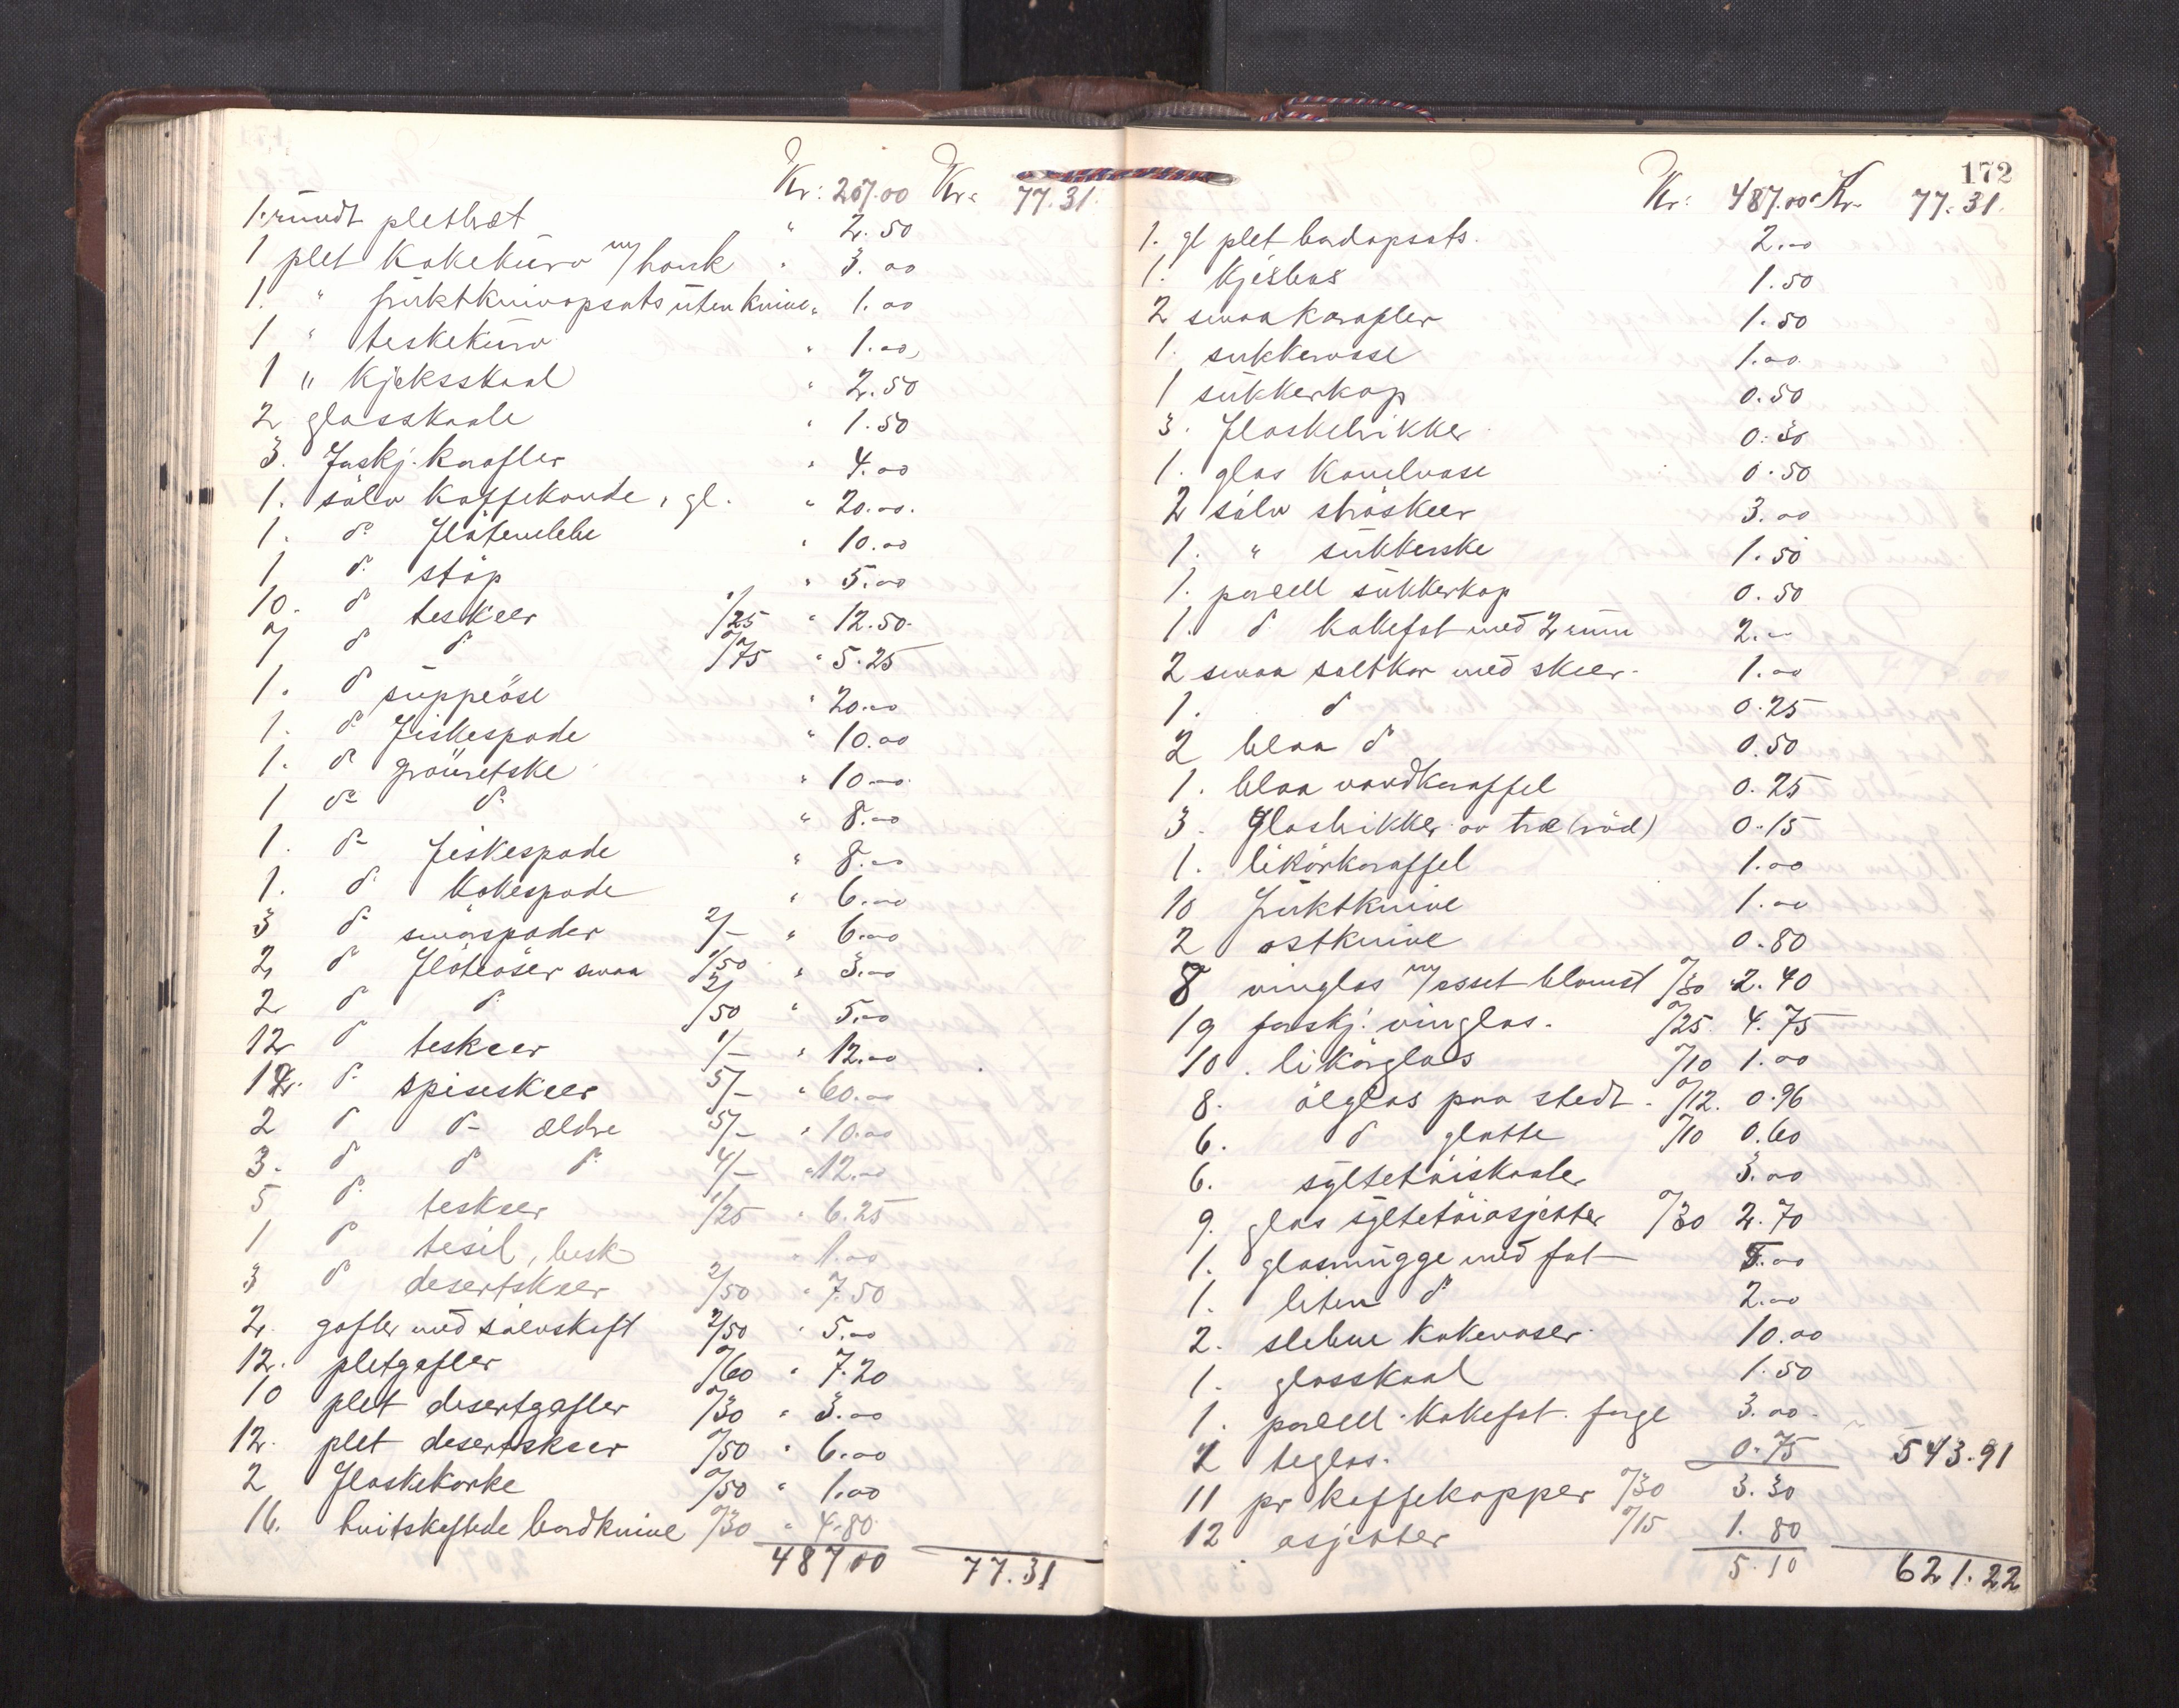 Kr: 207.00 Kr: 77.31
1. rundt pletbræt " 2.50
1 plet Kakekurv m/hank " 3.00
1. " fruktknivopsats uten knive " 1.00
1 " teskekurv " 1.00
1 " Kjeksskaal " 2.50
2 glasskaale " 1.50
3. Forskj. karafler " 4.00
1. sölv Kaffekande, gl. " 20.00.
1. do Flötemugge " 10.00
1 do stöp " 5.00
10. do teskeer 1/25 " 12.50
7 do do 0/75 " 5.25
1. do suppeöse " 20.00
1. do Fiskespade " 10.00
1. do grönretske " 10.00
1 do do " 8.00
1. do fiskespade " 8.00
1. do Kakespade " 6.00
3 do smörspader 2/- " 6.00
2 do Flöteöser smaa 1/50 " 3.00
2 do do 2/50 " 5.00
12 do teskeer 1/- " 12.00
12. do spiseskeer 5/- " 60.00
2 do do ældre 5/- " 10.00
3. do do do 4/- " 12.00
5 do teskeer 1/25 " 6.25
1 do tesil, besk " 1.00
3 do desertskeer 2/50 " 7.50
2. gafler med sölvskaft 2/50 " 5.00
12. pletgafler 0/60 " 7.20
10 plet desertgafler 0/30 " 3.00
12. plet desertskeer 0/50 " 6.00
2 Flaskekorke 0/50 " 1.00
16. hvitskaftede bordknive 0/30 " 4.80
48700 77.31
172
Kr: 487.00 Kr. 77.31.
1. gl plet bordopsats. 2.00
1. Kjeksbas 1.50
2 smaa karafler 1.50
1. sukkervase 1.00
1 sukkerkop 0.50
3. Flaskebrikker 0.30
1. glas Kanelvase 0.50
2 sölv ströskeer 3.00
1. " sukkerske 1.50
1. porcell sukkerkop 0.50
1. do kakefat med 2 rum 2.00
2 smaa saltkar med skeer. 1.00
1. do 0.25
2 blaa do 0.50
1. blaa vandkaraffel 0.25
3. Glasbrikker av træ (röd) 0.15
1. likörkaraffel 1.00
10 Fruktknive 1.00
2 ostknive 0.80
8 vinglas m/esset blomst 0/30 2.40
19 forskj. vinglas. 0/25. 4.75
10. likörglas 0/10 1.00
8. ölglas paa stedt. 0/12. 0.96
6. do glatte 0/10 0.60
6. syltetöiskaaler 3.00
9. glas syltetöiasjetter 0/30 2.70
1. glasmugge med fat 5.00
1. liten do 2.00
2. slebne kakevaser. 10.00
1. glasskaal 1.50
1. porcell. Kakefat. farge 3.00.
2 teglas. 0.75 543.91
11 pr kaffekopper 0/30 3.30
12 asjetter 0/15 1.80
5.10 621.22